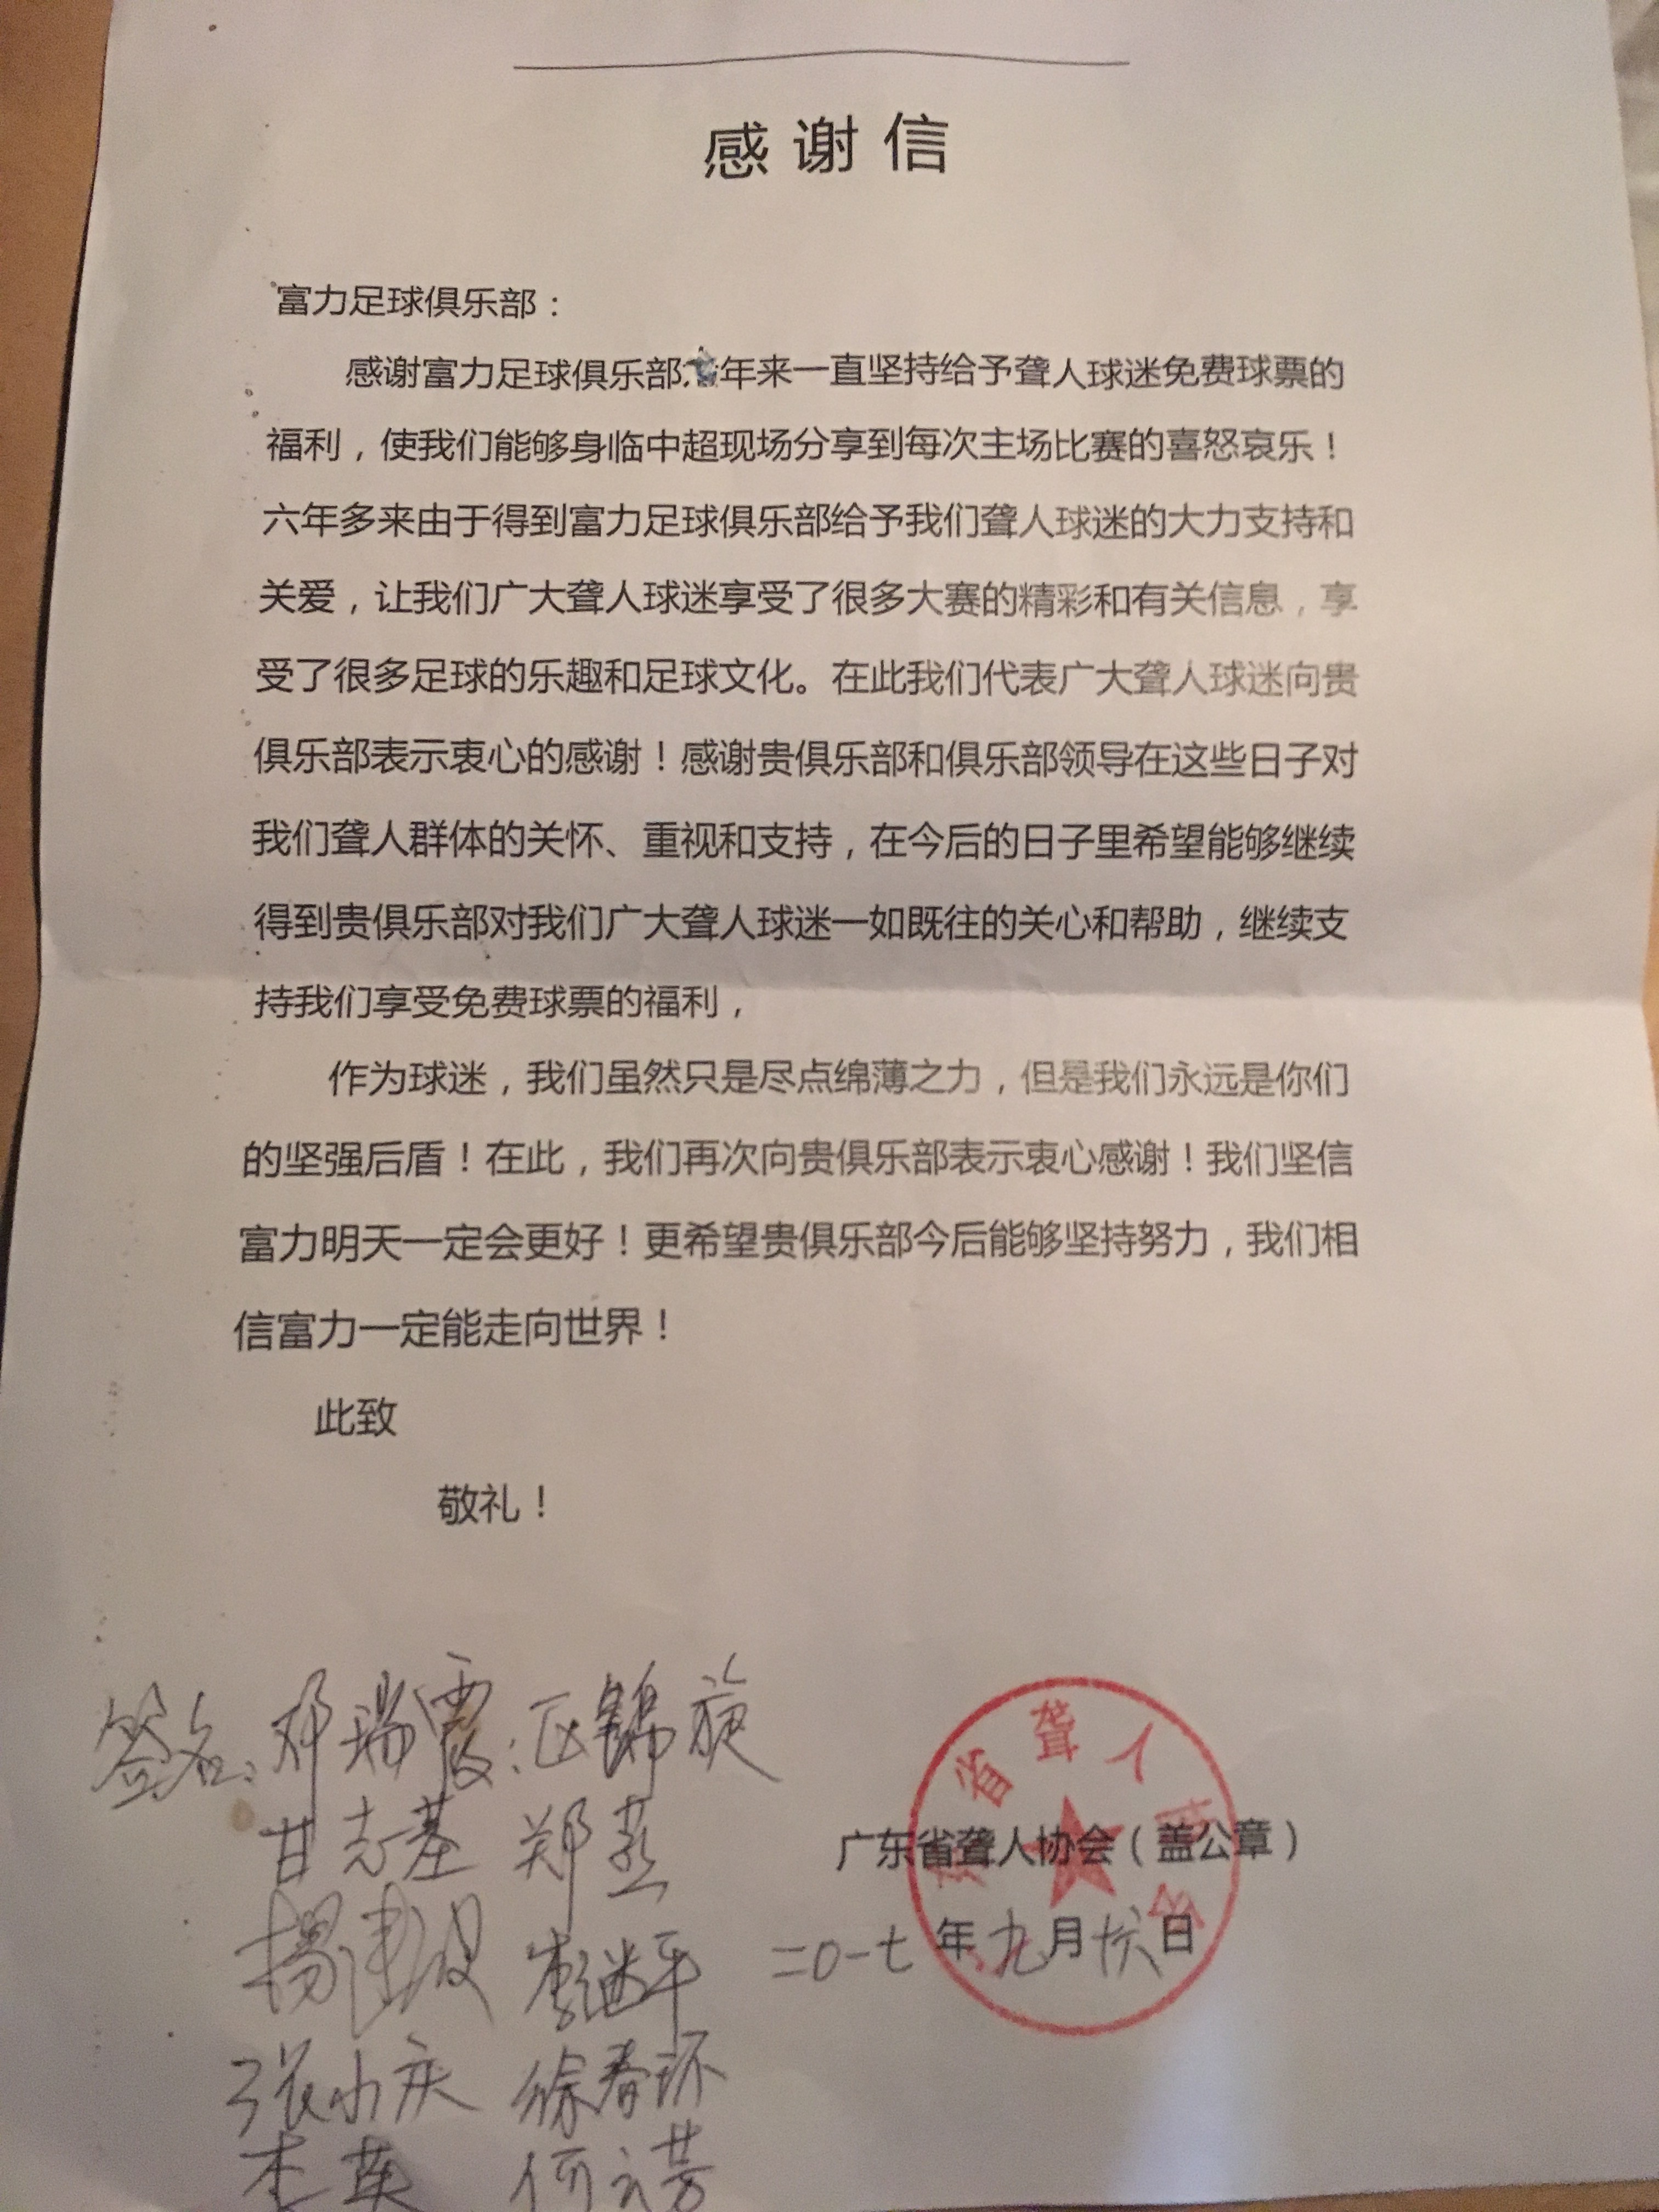 感谢信
富力足球俱乐部：
感谢富力足球俱乐部年来一直坚持给予聋人球迷免费球票的
福利，使我们能够身临中超现场分享到每次主场比赛的喜怒哀乐！
六年多来由于得到富力足球俱乐部给予我们聋人球迷的大力支持和
关爱，让我们广大聋人球迷享受了很多大赛的精彩和有关信息，享
受了很多足球的乐趣和足球文化。在此我们代表广大聋人球迷向贵
俱乐部表示衷心的感谢！感谢贵俱乐部和俱乐部领导在这些日子对
我们聋人群体的关怀、重视和支持，在今后的日子里希望能够继续
得到贵俱乐部对我们广大聋人球迷一如既往的关心和帮助，继续支
持我们享受免费球票的福利，
作为球迷，我们虽然只是尽点绵薄之力，但是我们永远是你们
的坚强后盾！在此，我们再次向贵俱乐部表示衷心感谢！我们坚信
富力明天一定会更好！更希望贵俱乐部今后能够坚持努力，我们相
信富力一定能走向世界！
此致
敬礼！
签名：邓瑞霞：区锦旋
甘志基 郑燕
杨建设 李继平
张小庆 徐春环
李英 何云芳
省聋人
广东省聋人协会（盖公章）
二0一七年九月十六日